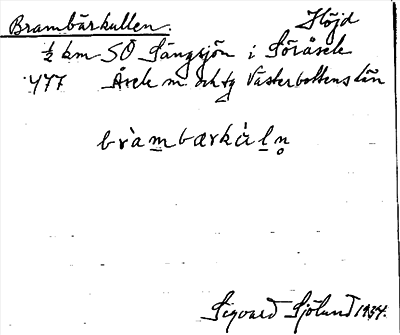 Brambärkullen. Höjd
½ km SO Långsjön i Söråsele
477 Åsele sn och tg Västerbottens län
bràmbærkàḷn̥
Sigvard Sjölund 1934.